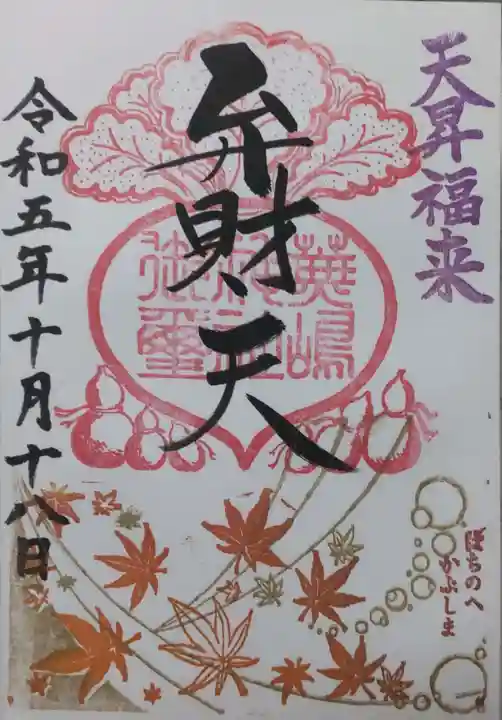 天昇福来
弁財天
蕪嶋神社御璽
令和五年十月十八日
はちのへ
かぶしま